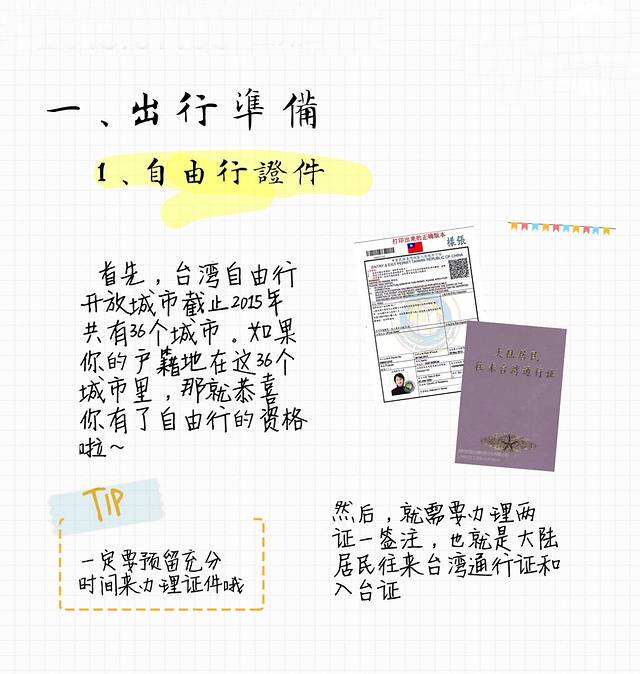 一、出行準備
1、自由行證件
首先，台湾自由行
开放城市截止2015年
共有36个城市。如果
你的户籍地在这36个
城市里，那就恭喜
你有了自由行的资格
啦～
打印出来的正機版本
樣張
ENTRY & EXIT PERMIT TAIWAN REPUBLIC OF CHINA
大陆居民
往来台湾通行证
TIP
一定要预留充分
时间来办理证件哦
然后，就需要办理两
证一签注，也就是大陆
居民往来台湾通行证和
入台证